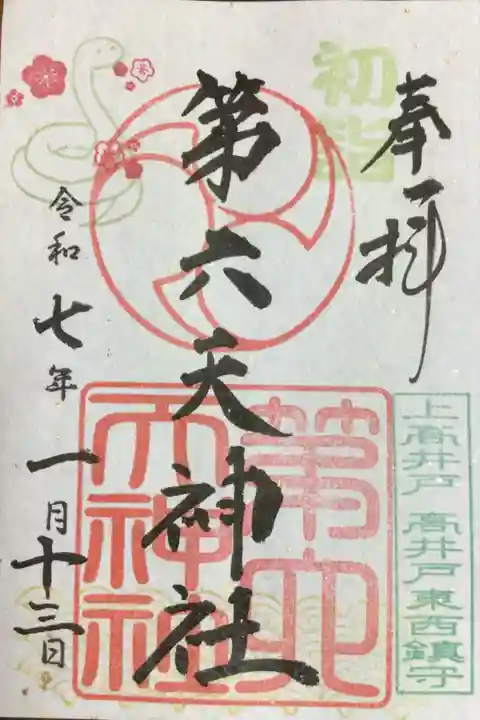 奉拝
初詣
上高井戸 高井戸東西鎮守
第六天神社
第六
天神社
令和七年一月十三日